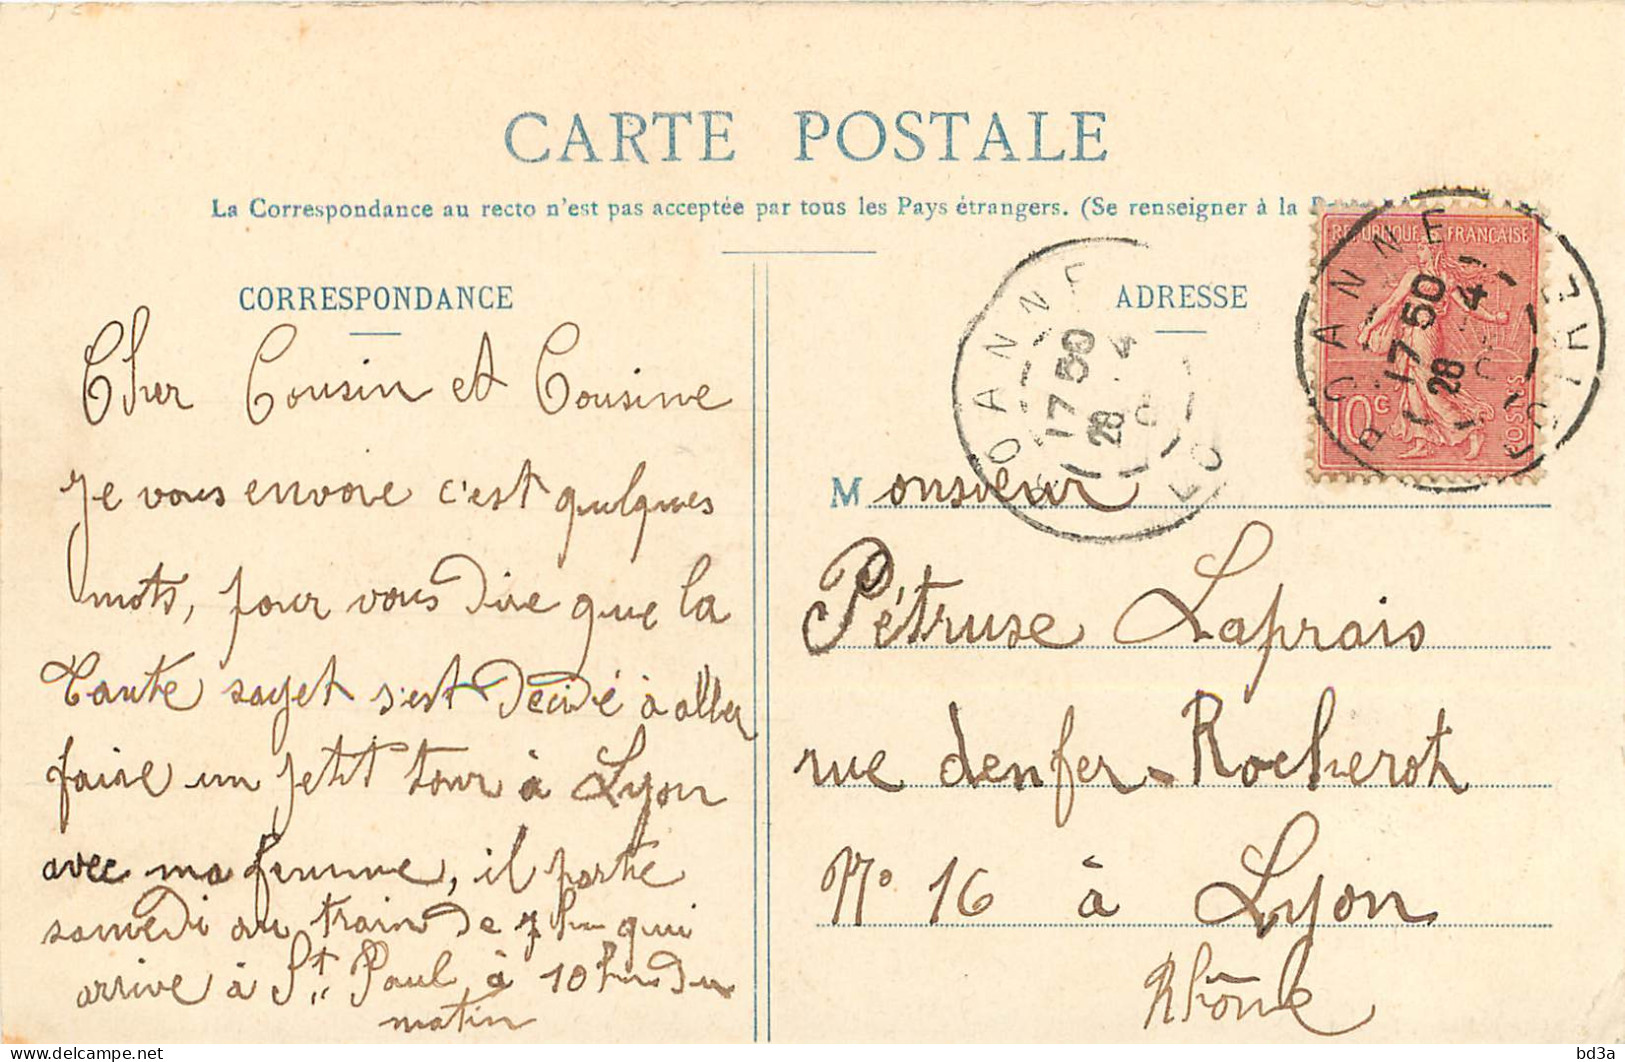 CARTE POSTALE
La Correspondance au recto n'est pas acceptée par tous les Pays étrangers. (Se renseigner à la
CORRESPONDANCE
Cher Cousin et Cousine
Je vous envoie c'est quelques
mots, pour vous dire que la
tante sayet s'est décidé à aller
faire un petit tour à Lyon
avec ma femme, il parte
samedi au train de 7 h qui
arrive à St. Paul à 10 h du
matin
ADRESSE
Monsieur
Pétruse Laprais
rue denfer-Rocherot
No 16 à Lyon
Rhône
REPUBLIQUE FRANÇAISE
10 c
POSTES
ROANNE
17 50
28 4
LOIRE
ROANNE
17 50
28 4
LO
bd3a